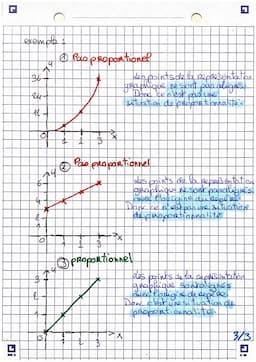 exemple 1
① Pas proportionnel
y
36
24
12
0 1 2 3 x
Les points de la représentation
graphique ne sont pas alignés
Donc ce n'est pas une
situation de proportionnalité.
② Pas proportionnel
y
6
4
0 1 2 3 x
Les points de la représentation
graphique ne sont pas alignés
avec l'origine du repère
Donc ce n'est pas une situation
de proportionnalité
③ proportionnel
y
3
2
1
0 1 2 3 x
Les points de la représentation
graphique sont alignés
avec l'origine du repère
Donc c'est une situation de
proportionnalité
3/3